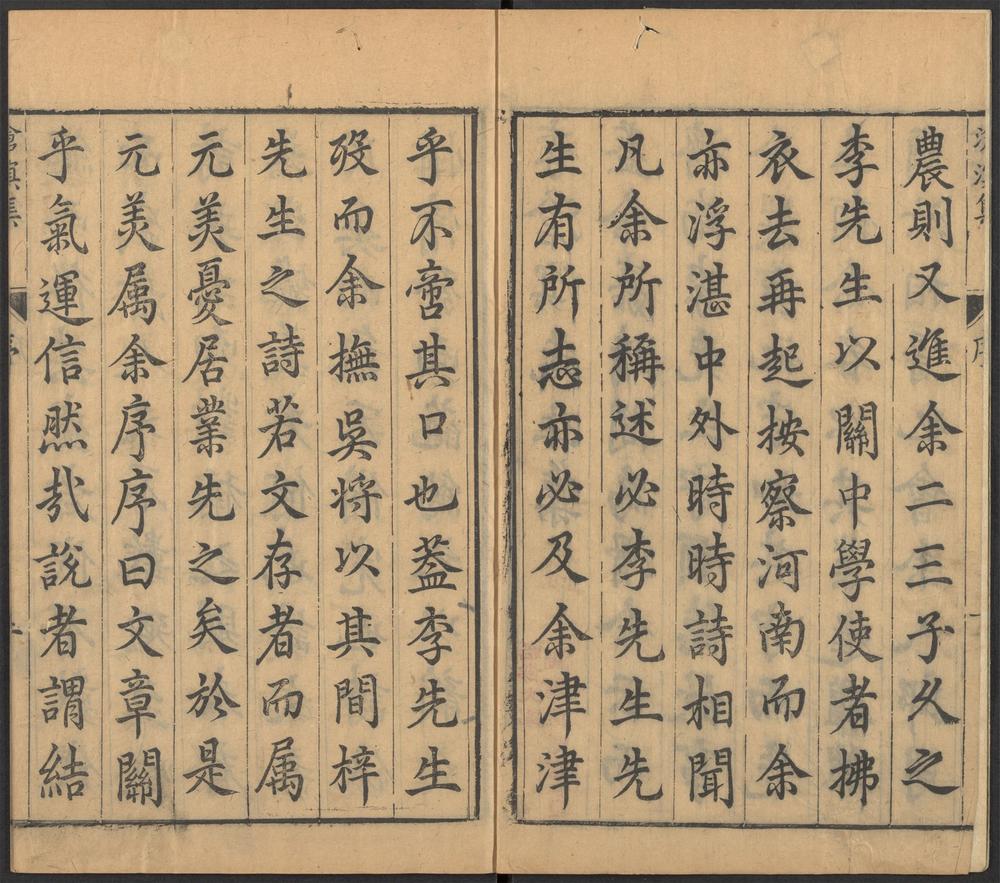 農則又進余二三子久之
李先生以關中學使者拂
衣去再起按察河南而余
亦浮湛中外時時詩相聞
凡余所稱述必李先生先
生有所志亦必及余津津
乎不啻其口也葢李先生
歿而余撫吳將以其間梓
先生之詩若文存者而属
元美憂居業先之矣於是
元美属余序序曰文章關
乎氣運信然㢤說者謂結
滄溟集
序